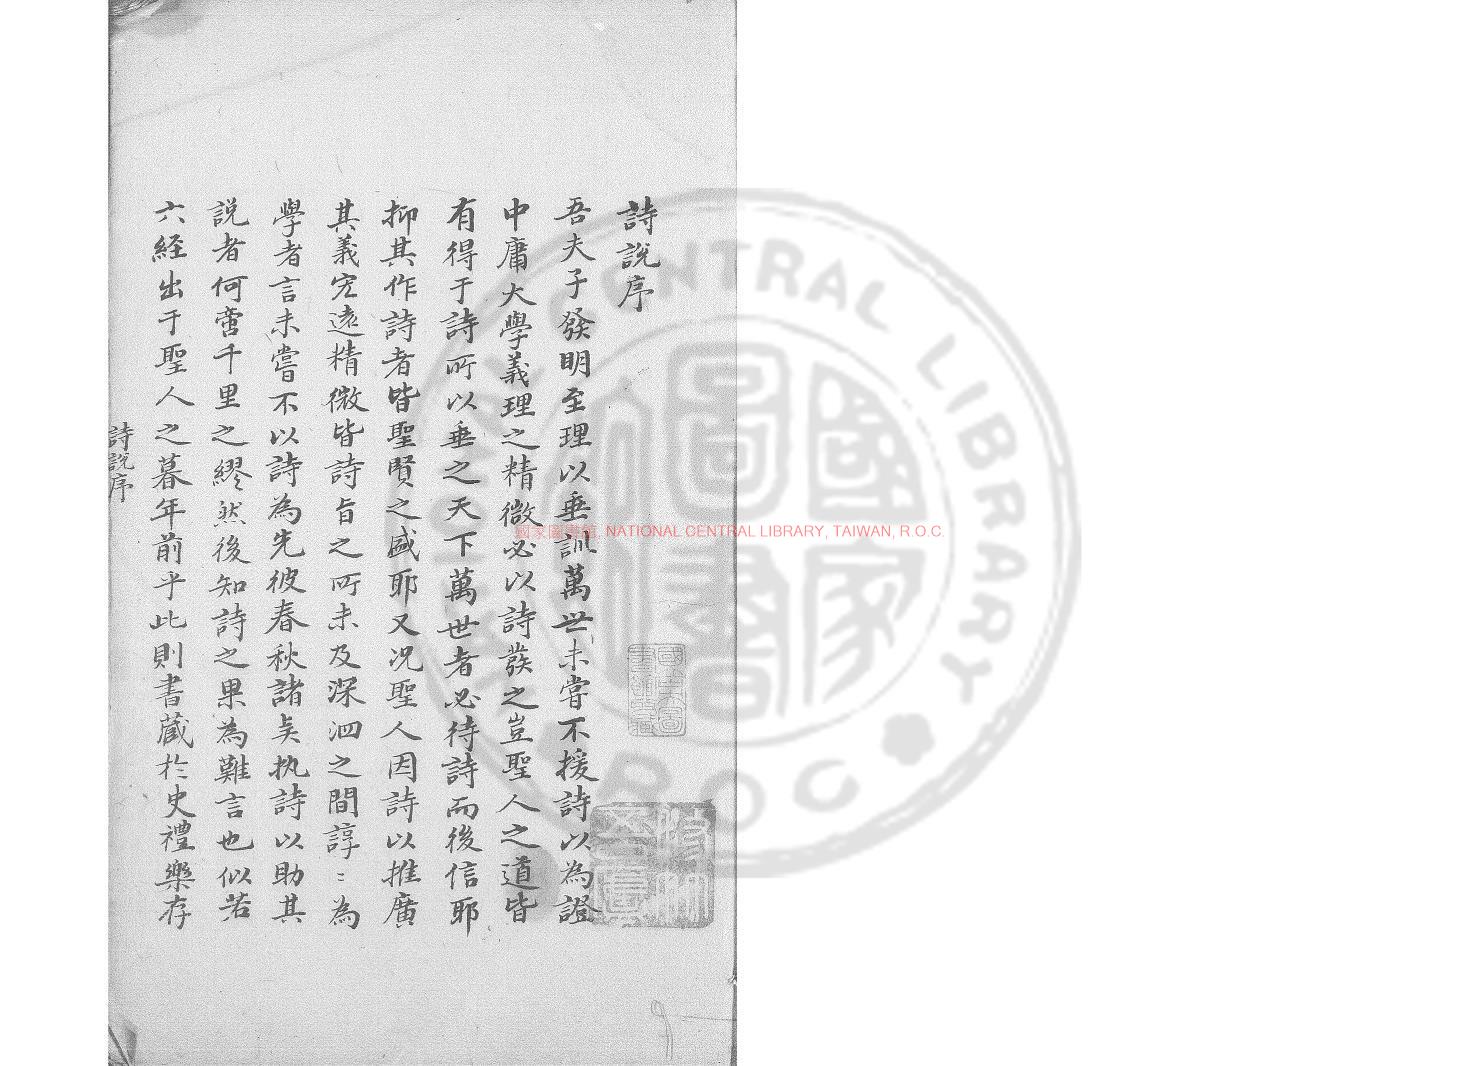 詩説序
吾夫子發明至理以垂訓萬世未嘗不援詩以為證
中庸大學義理之精微必以詩發之豈聖人之道皆
有得于詩所以垂之天下萬世者必待詩而後信耶
抑其作詩者皆聖賢之盛耶又况聖人因詩以推廣
其義宏遠精微皆詩旨之所未及深泗之間諄〻為
學者言未嘗不以詩為先彼春秋諸矦执詩以助其
說者何啻千里之繆然後知詩之果為難言也似若
六經出于聖人之暮年前乎此則書蔵於史禮樂存
詩說序
國家圖書館, NATIONAL CENTRAL LIBRARY, TAIWAN, R.O.C.
NATIONAL CENTRAL LIBRARY
ROC
國家圖書館